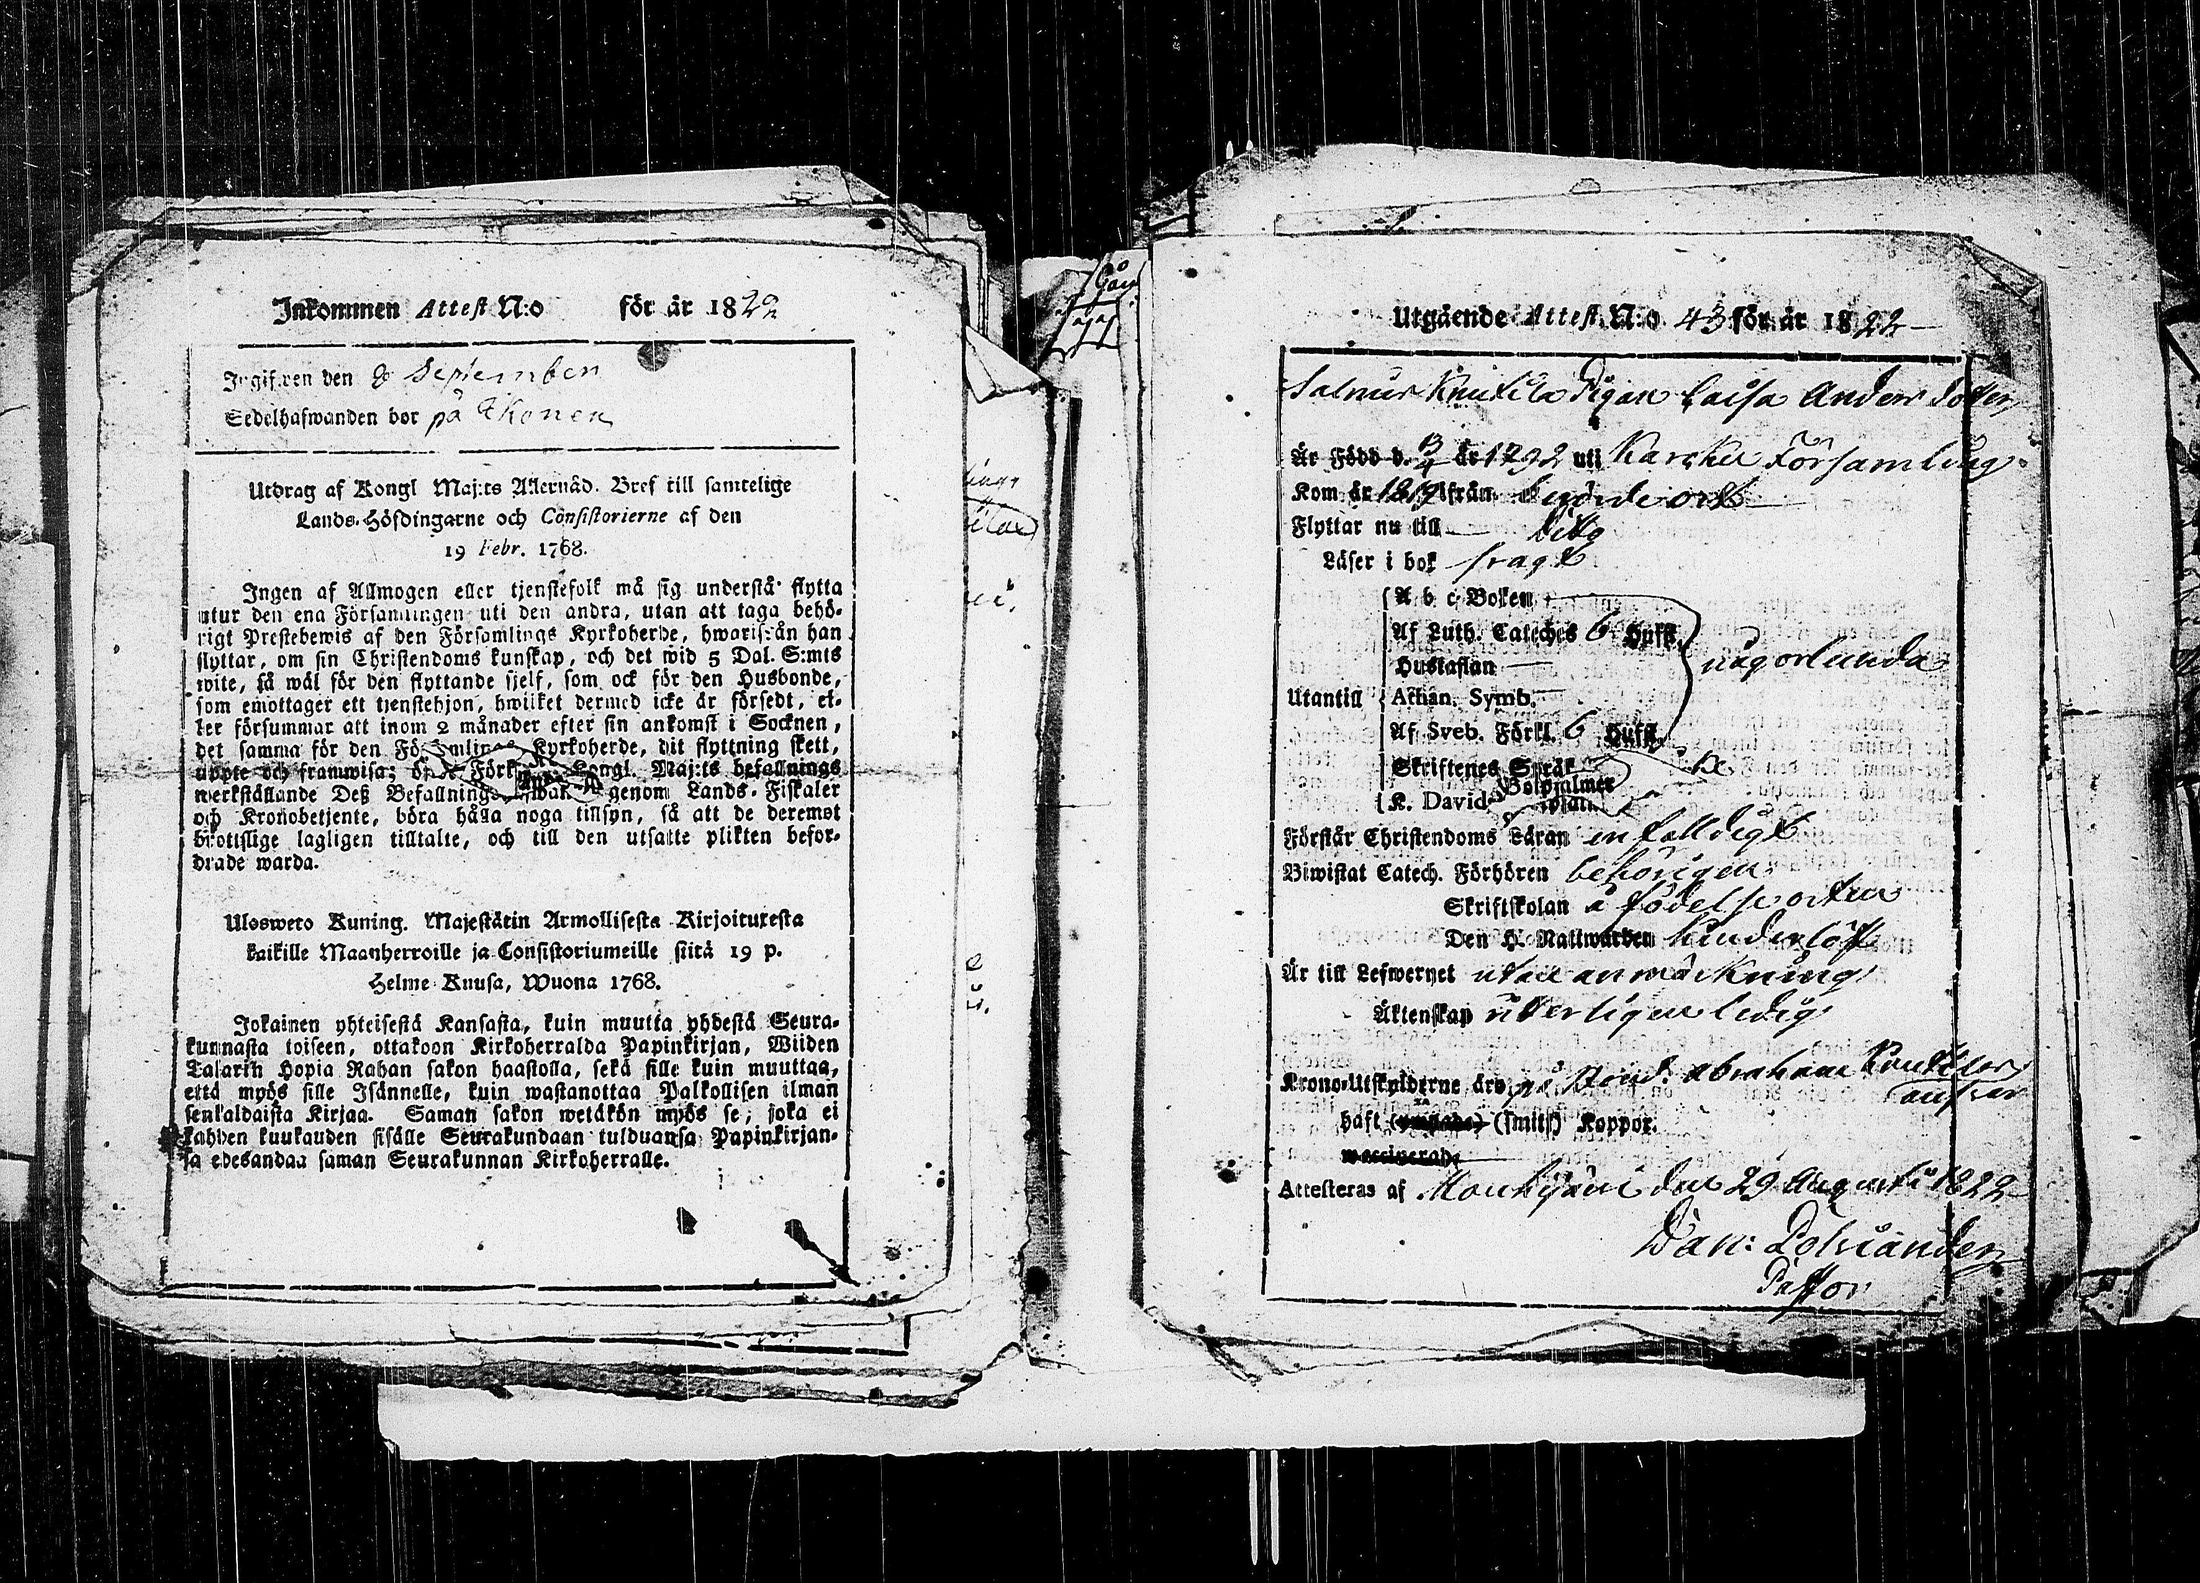 Inkommen Attest N:o för år 1822
Ingifwen den 8 September
Sedelhafwanden bor på
Utdrag af Kongl Maj:ts Allernåd. Bref till samtelige
Lands-Höfdingarne och Consistorierne af den
19 Febr. 1768.
Ingen af Allmogen eller tjenstefolk må sig understå flytta
utur den ena Församlingen uti den andra, utan att taga behö-
rigt Prestebewis af den Församlings Kyrkoherde, hwarifrån han
flyttar, om sin Christendoms kunskap, och det wid 5 Dal. S:mts
wite, så wäl för den flyttande sjelf, som ock för den Husbonde,
som emottager ett tjenstehjon, hwilket dermed icke är försedt, el-
ler försummar att inom 2 månader efter sin ankomst i Socknen,
det samma för den Församlings Kyrkoherde, dit flyttning skett,
uppte och framwisa; Kongl. Maj:ts befallnings
werkställande Deß Befallnings genom Lands-Fiskaler
och Kronobetjente, böra hålla noga tillsyn, så att de deremot
brottslige lagligen tilltalte, och till den utsatte plikten befor-
drade warda.
Uloswero Kuning. Majestätin Armollisesta Kirjoituresta
kaikille Maanherroille ja Consistoriumeille siitä 19 p.
Helme-Kuusa, Wuona 1768.
Jokainen yhteisestä Kansasta, kuin muutta yhdestä Seura-
kunnasta toiseen, ottakoon Kirkoherralda Papinkirjan, Wiiden
Talarin Hopia Rahan sakon haastolla, sekä sille kuin muuttaa,
että myös sille Isännelle, kuin wastanottaa Palkollisen ilman
senkaldaista Kirjaa. Saman sakon wetäkön myös se, joka ei
kahden kuukauden sisälle Seurakundaan tulduansa Papinkirjan-
sa edesandaa saman Seurakunnan Kirkoherralle.
Utgående Attest N:o 43 för år 1822
Knutila Pigan Caisa Anders dotter
Är Född d. 3/4 år 1792 uti Karcku Församling
Kom år 1819 från berörde ort
Flyttar nu till dito
Läser i bok svagt
A b c Boken
Af Luth. Cateches 6 Hufst.
Hustaflan
någorlunda
Utantill
Athan. Symb.
Af Sveb. Förkl. 6 Hufst.
Skriftenes Språk
K. Davids Botpsalmer
Förstår Christendoms Läran enfalldigt
Biwistat Catech. Förhören behörigen
Skriftskolan å födelse orten
Den H. Nattwarden hinderlöst
Är till Lefwernet utan anmärkning
Äktenskap witterligen ledig
Krono-Utskylderne äro på Bond. Abraham
haft (smitt) Koppor.
Attesteras af Mouhijärvi den 29 Augusti 1822
Dan: Polviander
Pastor